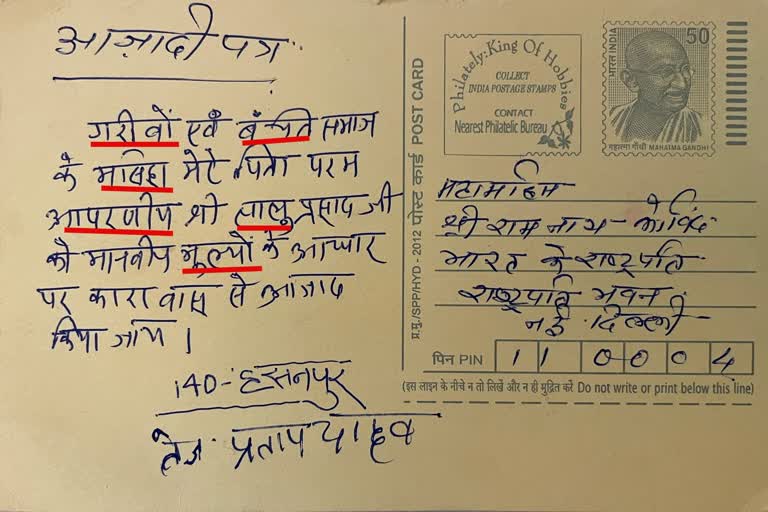 आज़ादी पत्र
गरीवों एवं बंचित समाज
के मसिहा मेरे पिता परम
आपरणीय श्री लालु प्रसाद जी
को मानवीय मुल्यों के आधार
पर कारावास से आजाद
किया जाय।
140-हसनपुर
तेज प्रताप यादव
प्र.मु./SPP/HYD - 2012 पोस्ट कार्ड POST CARD
Philately:King Of Hobbies
COLLECT
INDIA POSTAGE STAMPS
CONTACT
Nearest Philatelic Bureau
भारत INDIA
50
महात्मा गाँधी MAHATMA GANDHI
महामहिम
श्री राम नाथ कोविंद
भारत के राष्ट्रपति
राष्ट्रपति भवन
नई दिल्ली
पिन PIN 110004
(इस लाइन के नीचे न तो लिखें और न ही मुद्रित करें Do not write or print below this line)